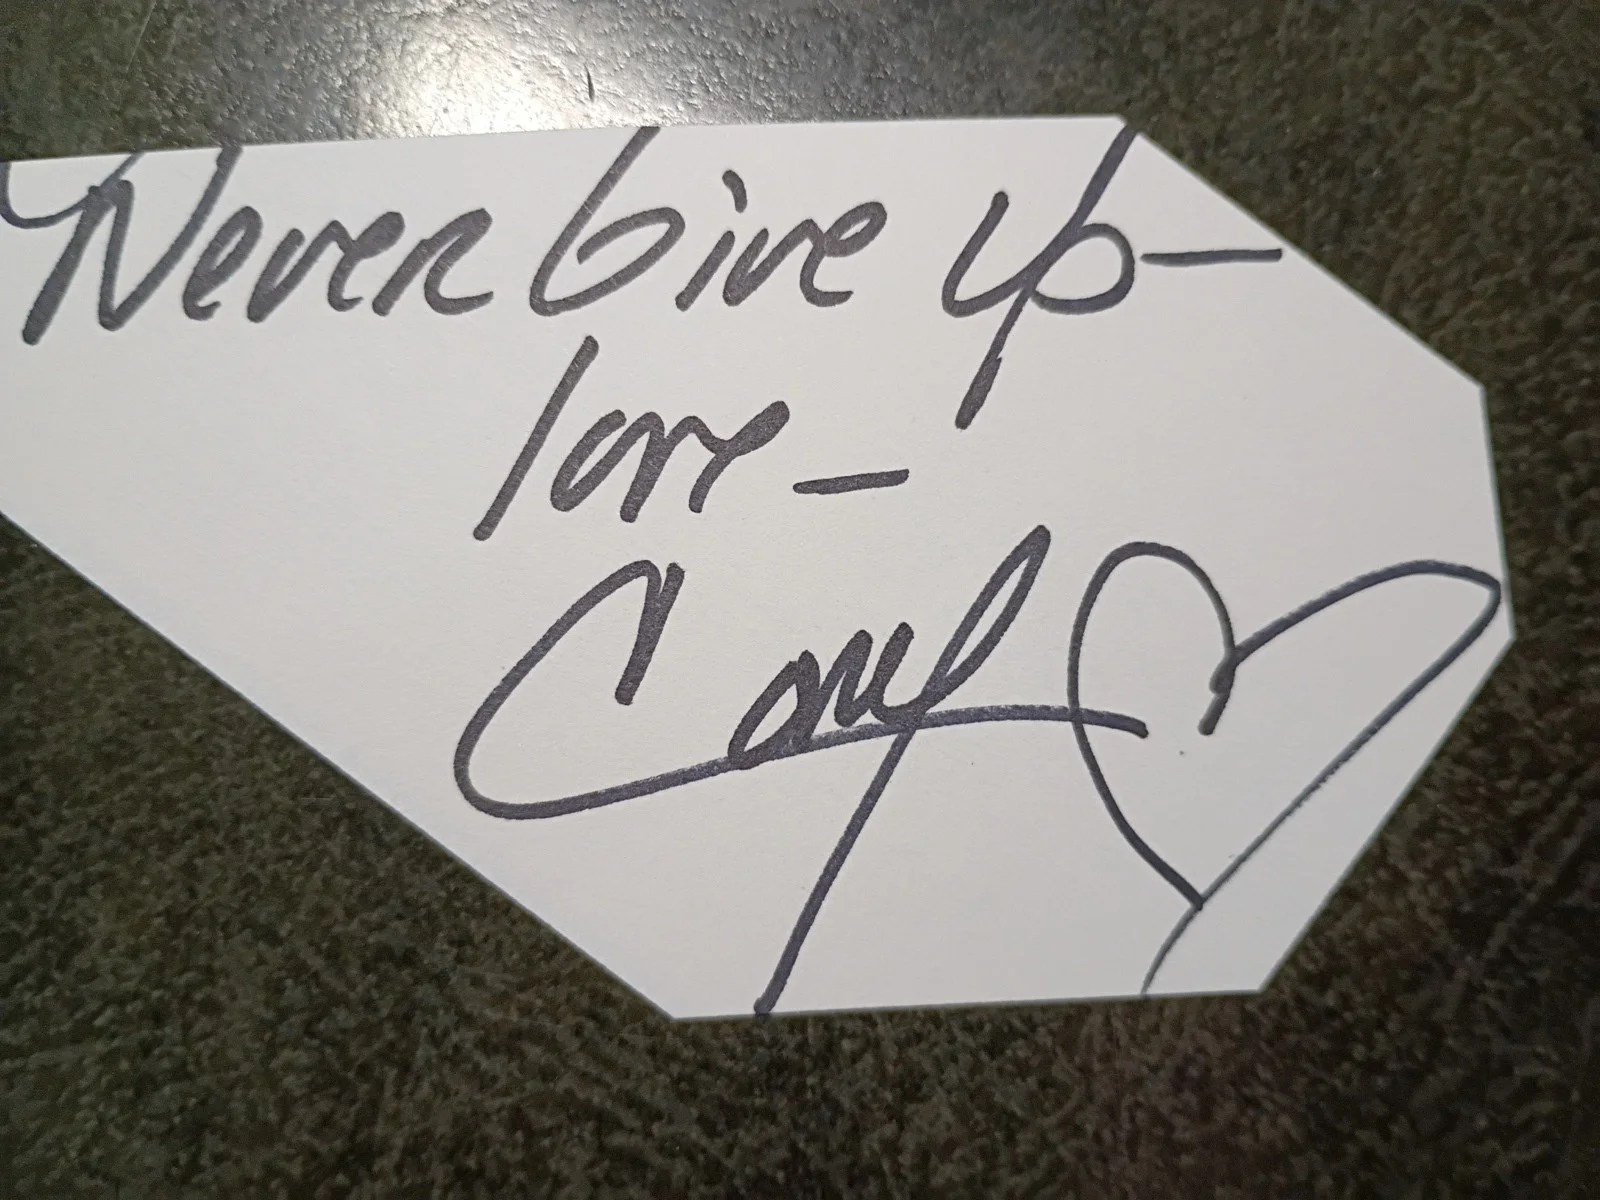 Never Give Up –
love –